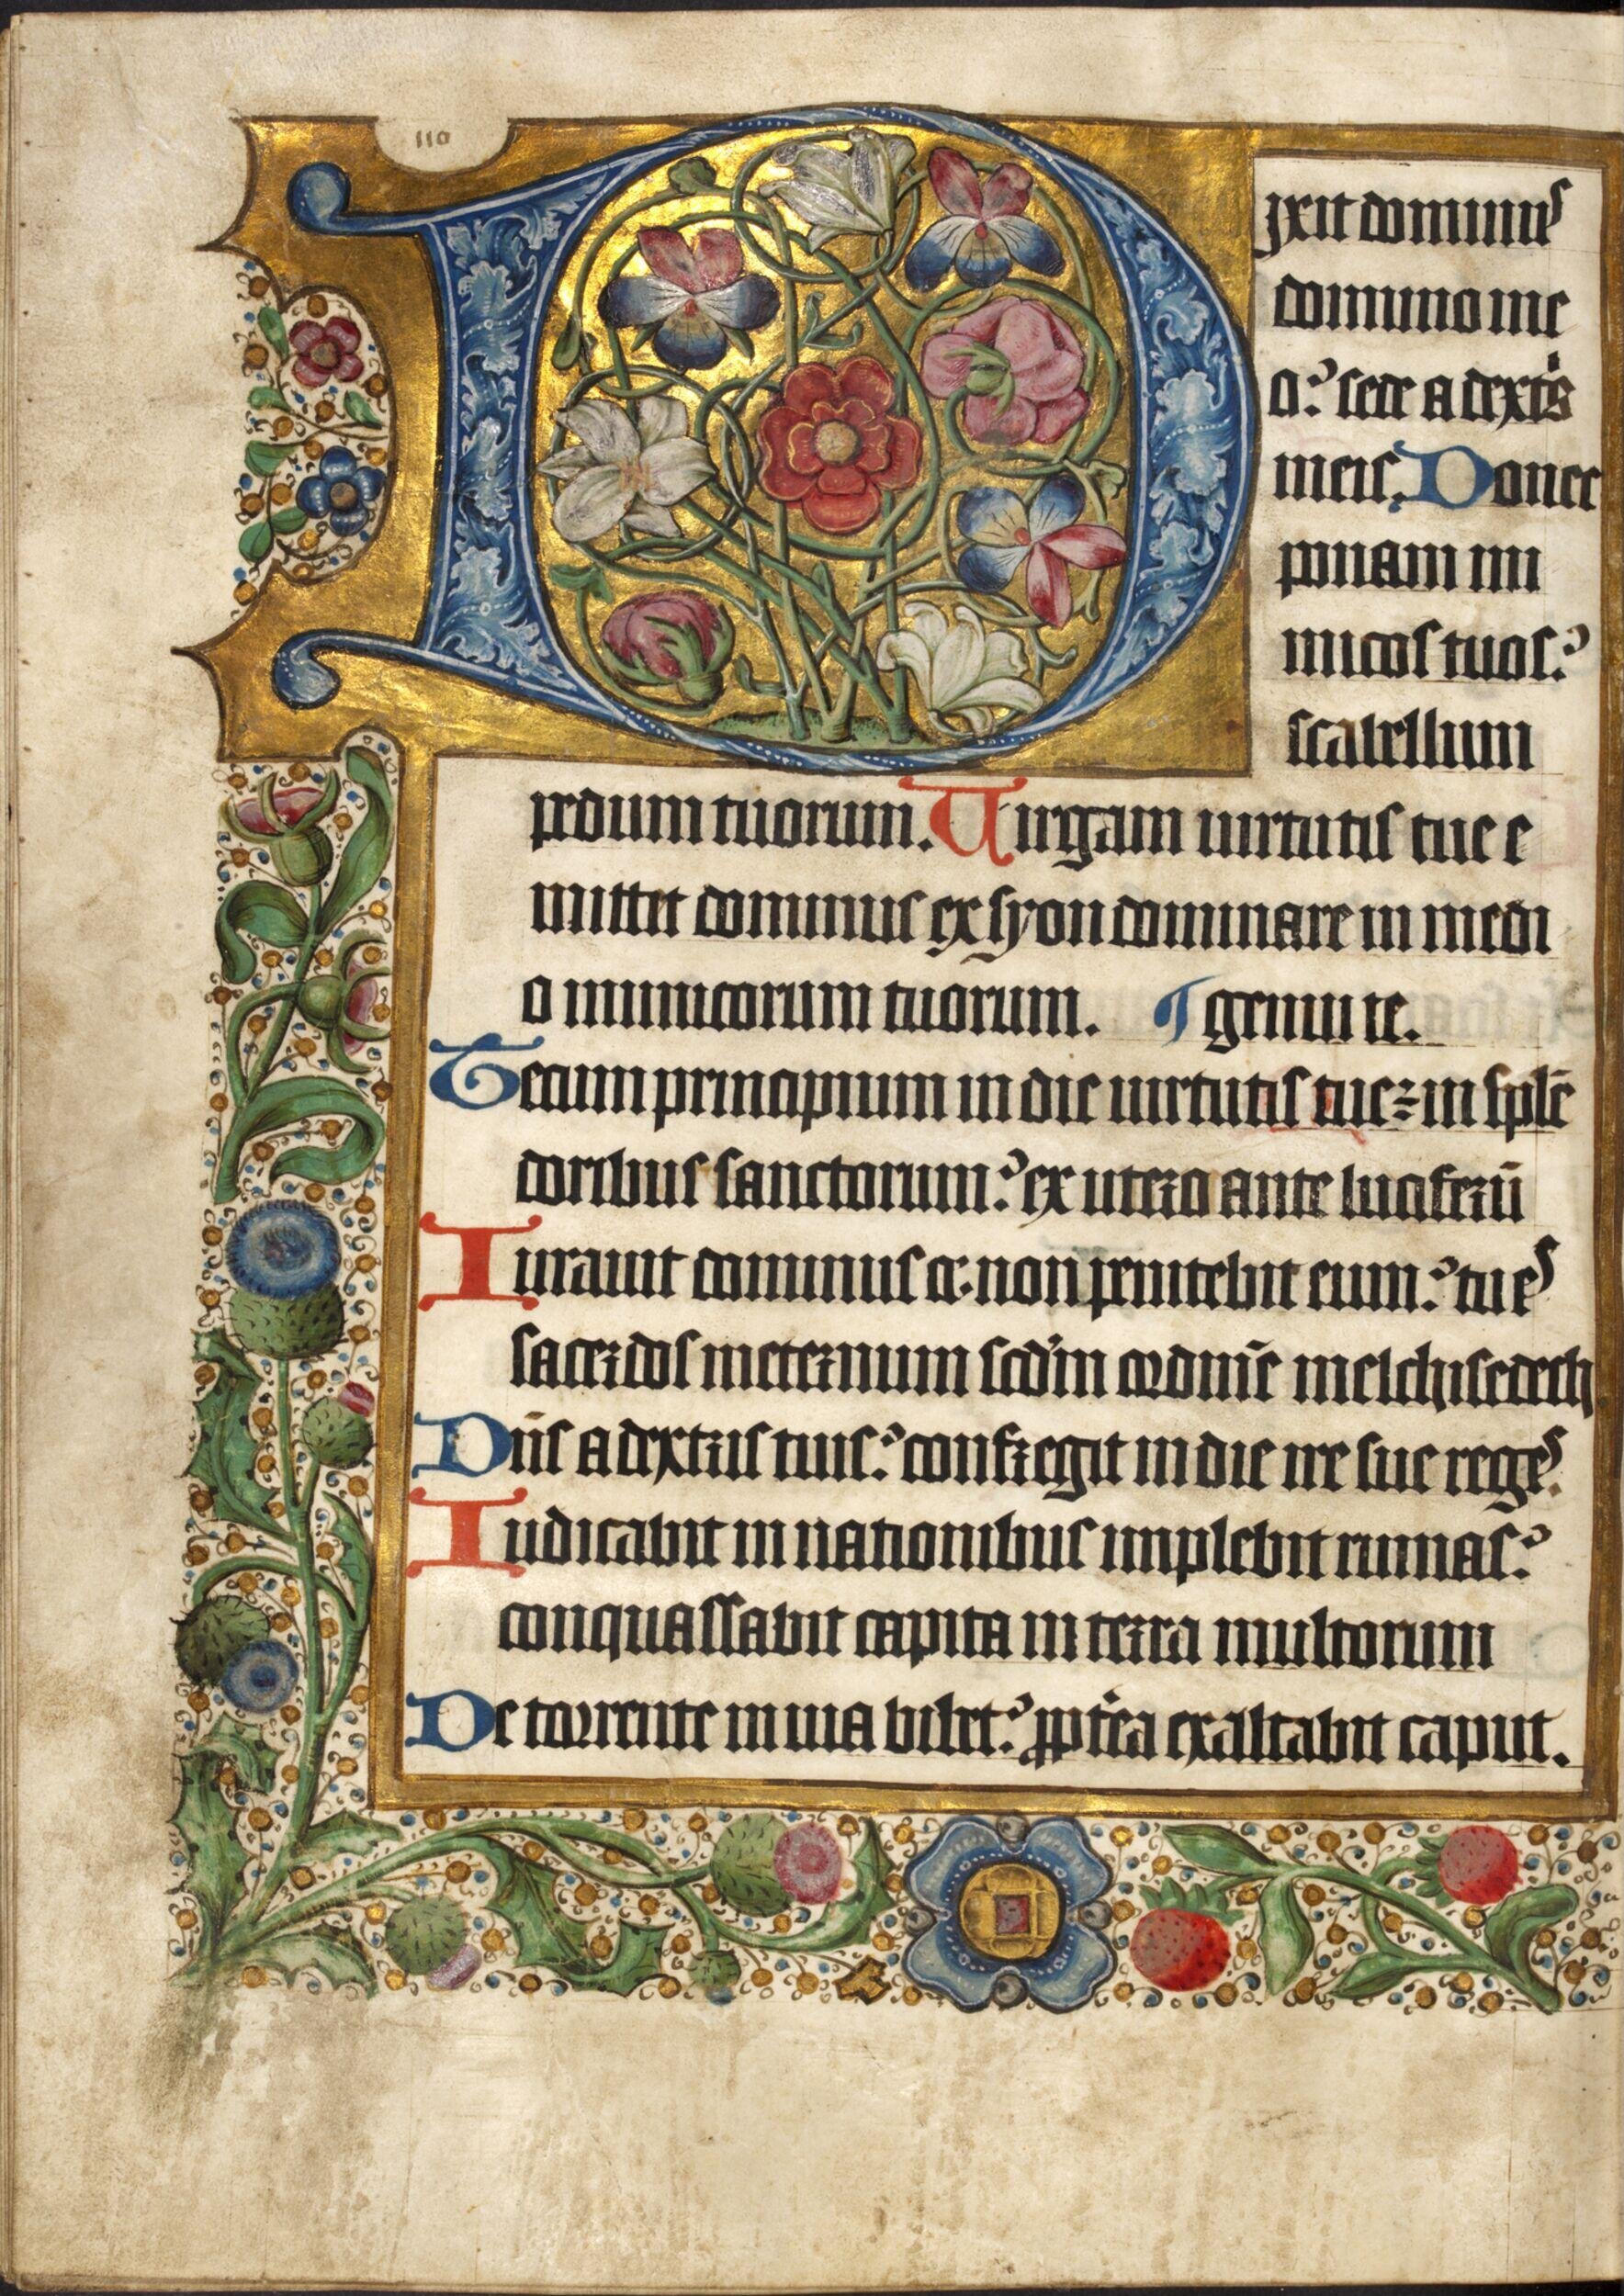 110
Dixit dominus
domino me
o: sede a dextꝭis
meis. Donec
ponam ini
micos tuos:
scabellum
pedum tuorum. Uirgam uirtutis tue e
mittet dominus ex syon dominare in medi
o inimicorum tuorum. ¶ genui te.
Tecum principium in die uirtutis tue in splē
doribus sanctorum: ex utero ante luciferū
Iurauit dominus et non penitebit eum: tu es
sacerdos in eternum scd'm ordinē melchisedech
Dn̄s a dextris tuis: confregit in die ire sue reges.
Iudicabit in nationibus implebit ruinas:
conquassabit capita in terra multorum
De torrente in uia bibet: ꝓpt'ea exaltabit caput.